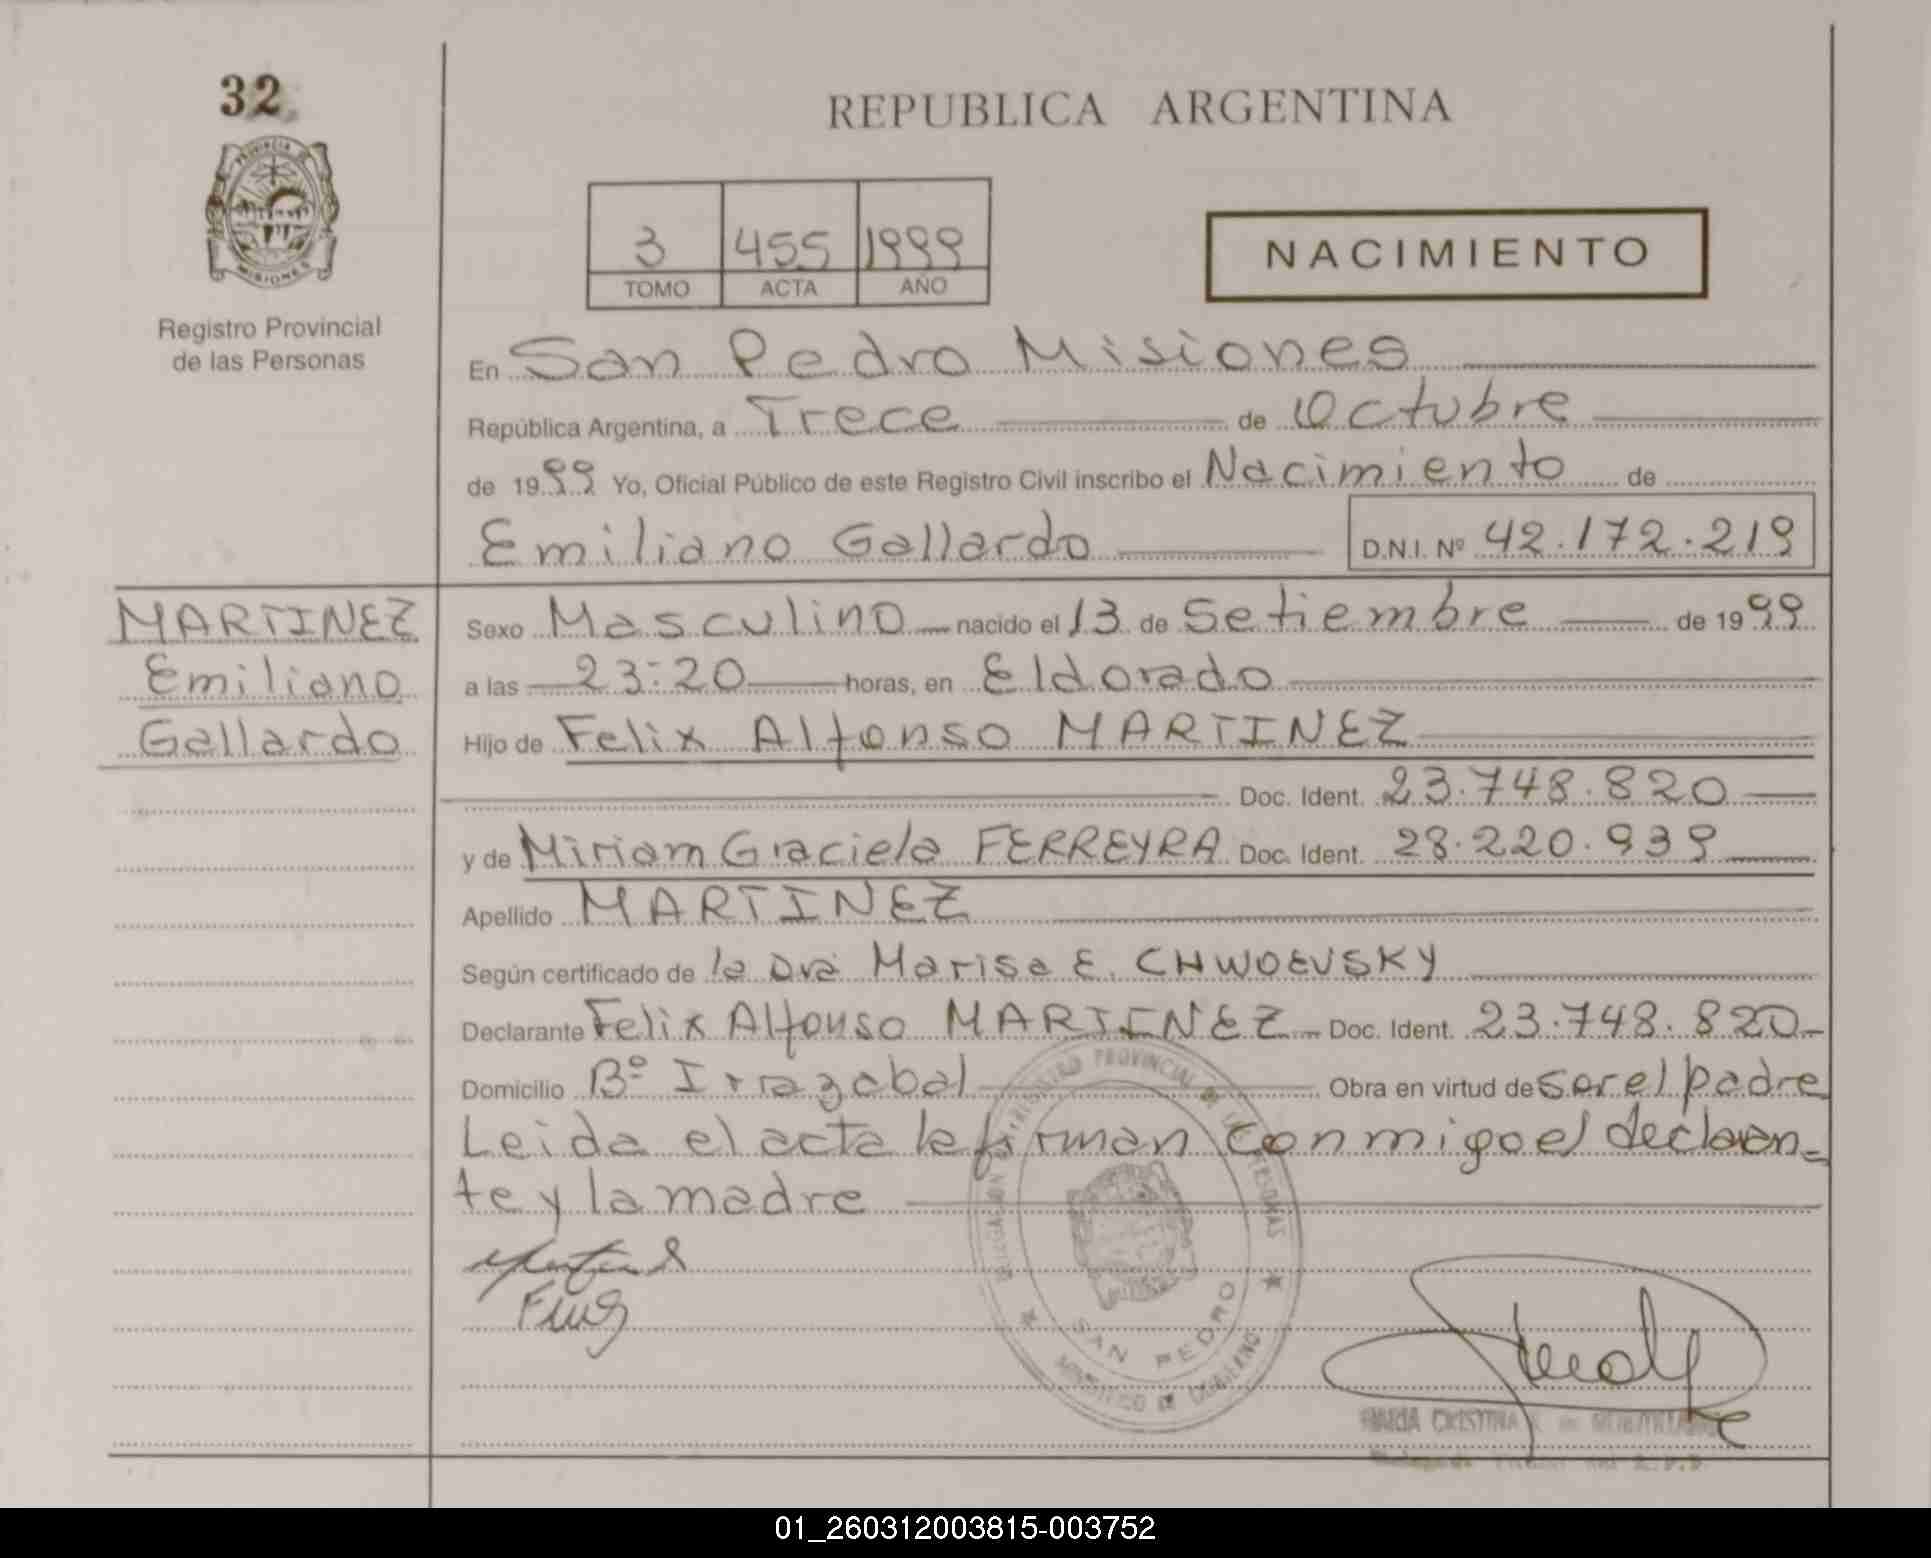 32
REPUBLICA ARGENTINA
PROVINCIA DE
MISIONES
3 455 1999
TOMO ACTA AÑO
NACIMIENTO
Registro Provincial
de las Personas
En San Pedro Misiones
República Argentina, a Trece de Octubre
de 1999 Yo, Oficial Público de este Registro Civil inscribo el Nacimiento de
Emiliano Gallardo D.N.I. Nº 42.172.219
MARTINEZ
Emiliano
Gallardo
Sexo Masculino nacido el 13 de Setiembre de 1999
a las 23:20 horas, en Eldorado
Hijo de Felix Alfonso MARTINEZ
Doc. Ident. 23.748.820
y de Miriam Graciela FERREYRA Doc. Ident. 28.220.939
Apellido MARTINEZ
Según certificado de la Dra Marisa E. CHWOEVSKY
Declarante Felix Alfonso MARTINEZ Doc. Ident. 23.748.820
Domicilio Bº Irrazabal Obra en virtud de ser el padre
Leida el acta la firman conmigo el declaran=
te y la madre
REGISTRO PROVINCIAL DE LAS PERSONAS
SAN PEDRO
CRISTINA
01_260312003815-003752